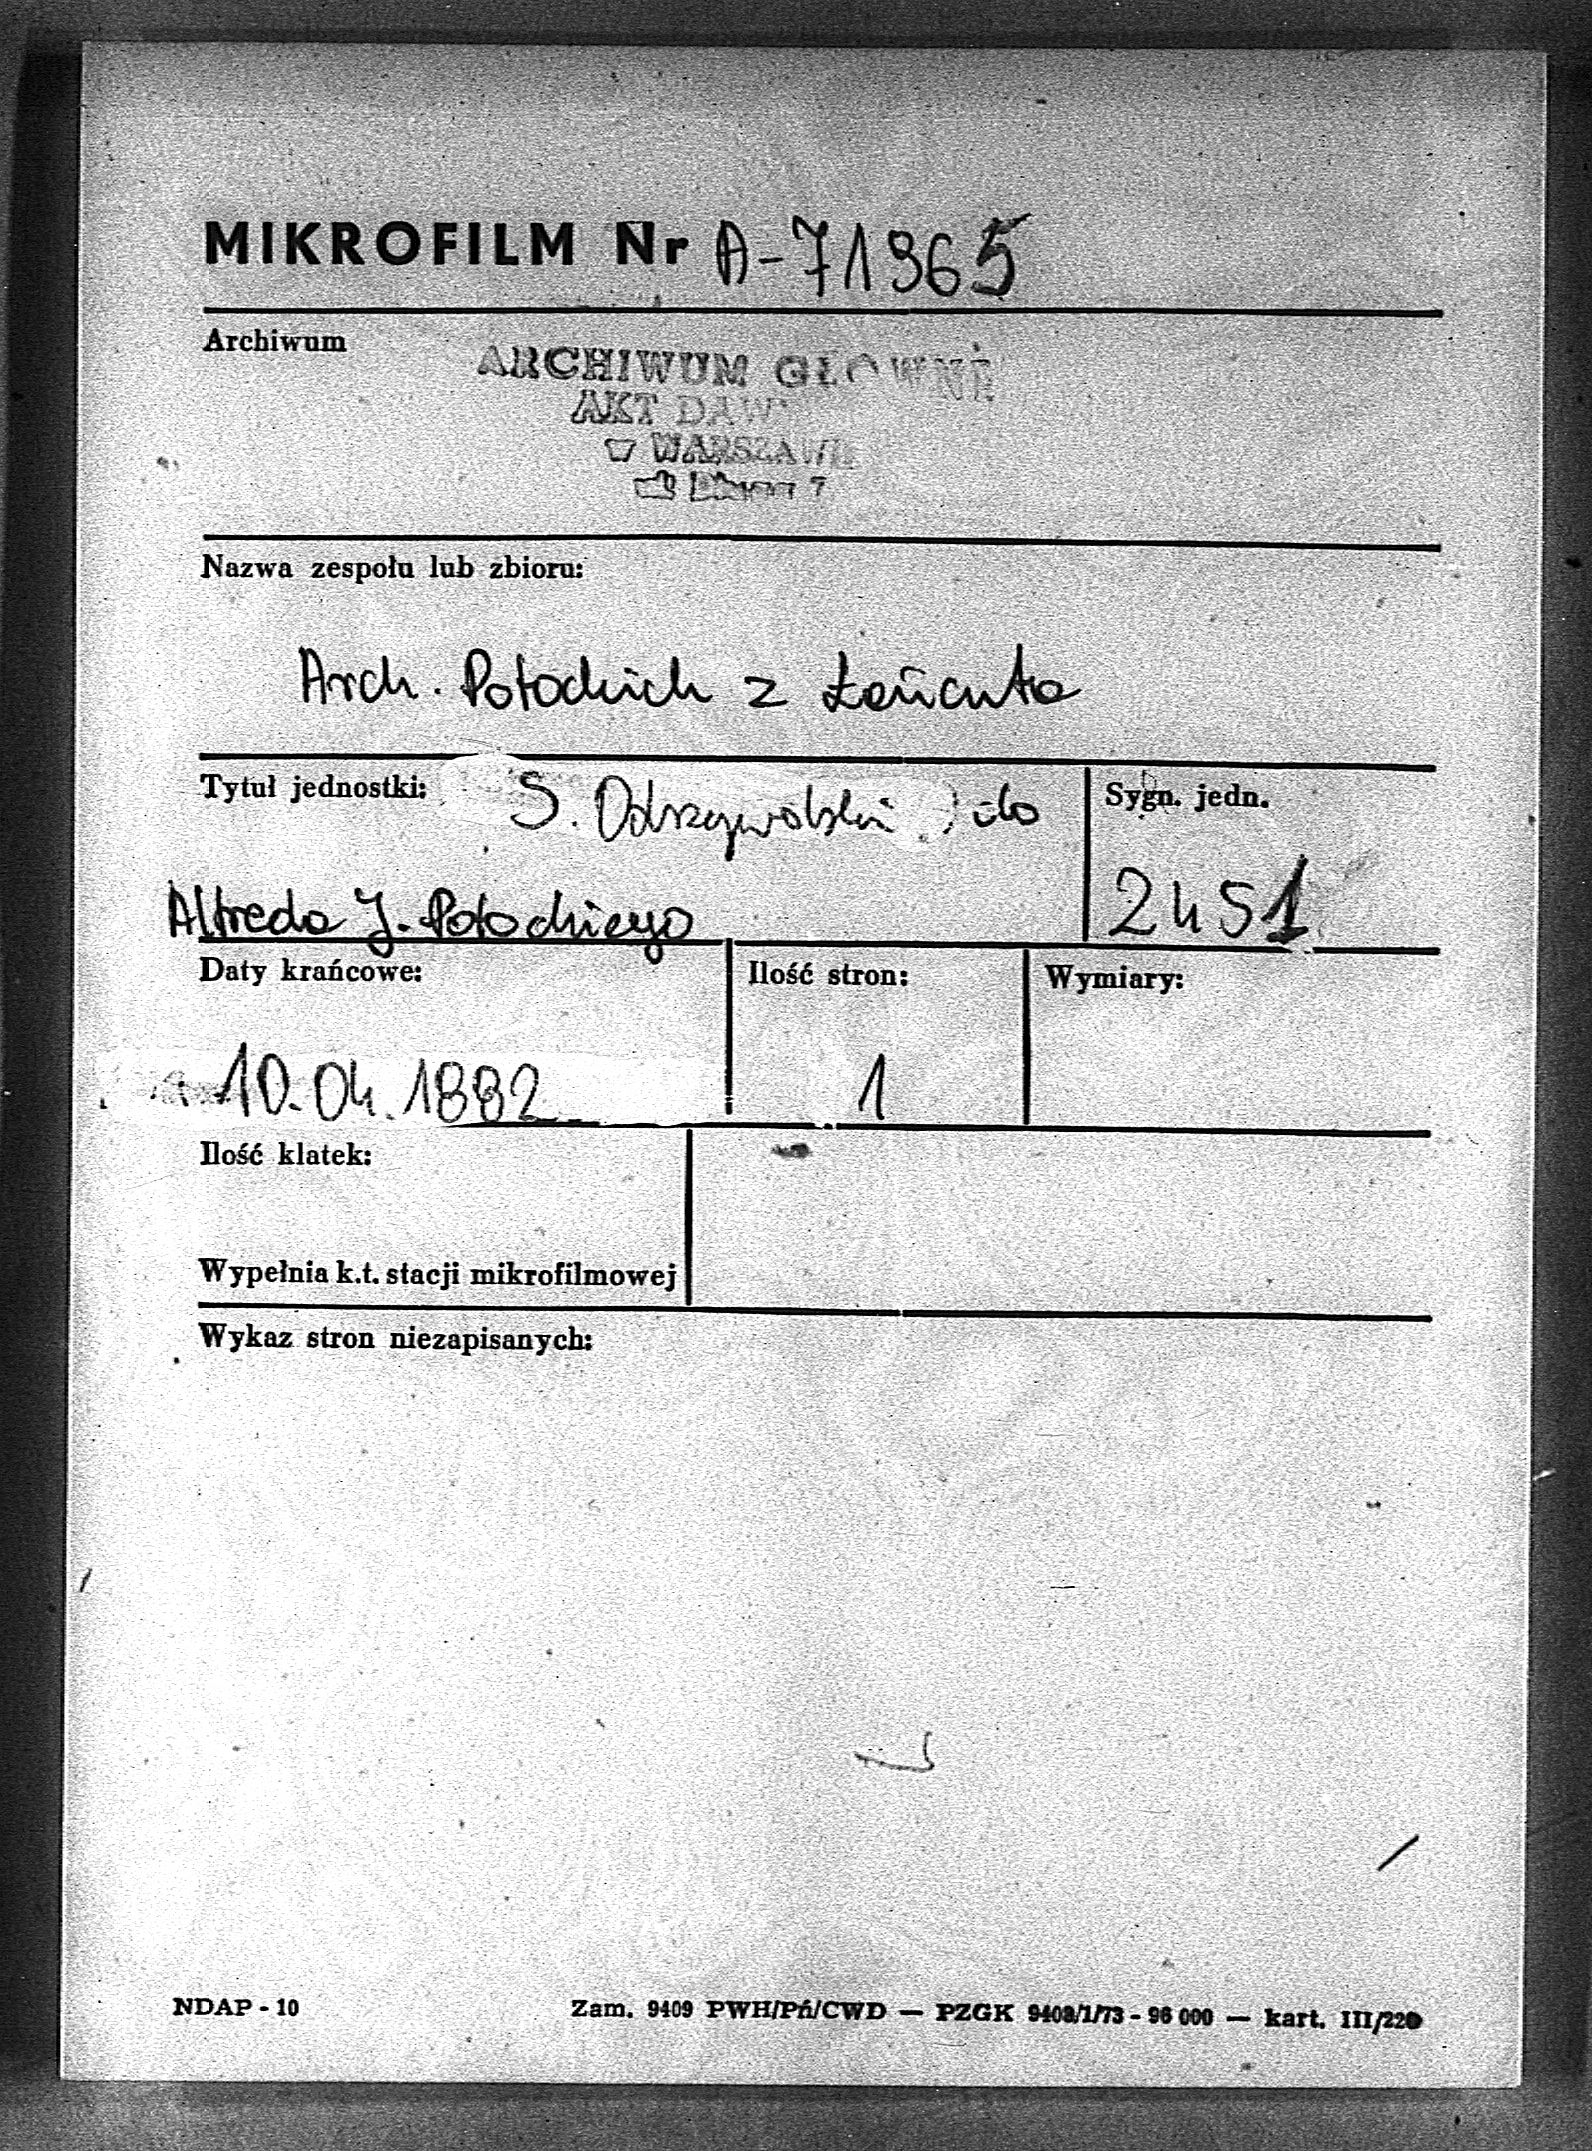 MIKROFILM Nr A-71965
Archiwum
ARCHIWUM GŁÓWNE
AKT DAW
W WARSZAWIE
7
Nazwa zespołu lub zbioru:
Arch. Potockich z Łańcuta
Tytuł jednostki: S. Odrzywolski do
Sygn. jedn.
Alfreda J. Potockiego
2451
Daty krańcowe: Ilość stron: Wymiary:
10.04.1882 1
Ilość klatek:
Wypełnia k.t. stacji mikrofilmowej
Wykaz stron niezapisanych:
NDAP - 10 Zam. 9409 PWH/Pń/CWD — PZGK 9408/1/73 - 96 000 — kart. III/220